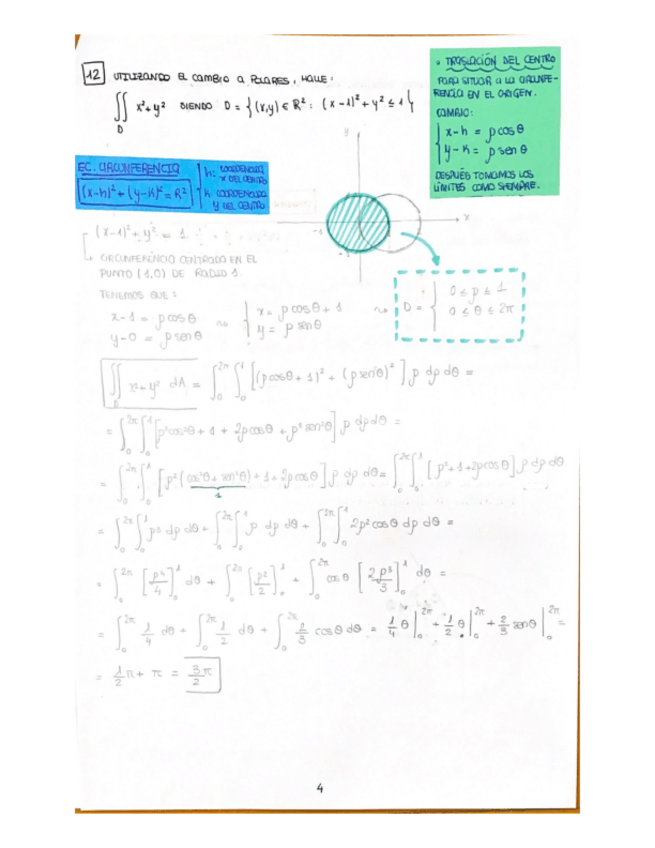 12 UTILIZANDO EL CAMBIO A POLARES, HALLE:
∬_D x²+y² SIENDO D = {(x,y) ∈ R² : (x-1)² + y² ≤ 1}
• TRASLACIÓN DEL CENTRO
PARA SITUAR A LA CIRCUNFE-
RENCIA EN EL ORIGEN.
CAMBIO:
x-h = ρ cos θ
y-k = ρ sen θ
DESPUÉS TOMAMOS LOS
LÍMITES COMO SIEMPRE.
EC. CIRCUNFERENCIA
(x-h)² + (y-k)² = R²
h: COORDENADA
X DEL CENTRO
k: COORDENADA
Y DEL CENTRO
y
x
-1
-1
(x-1)² + y² = 1
CIRCUNFERENCIA CENTRADA EN EL
PUNTO (1,0) DE RADIO 1.
TENEMOS QUE:
x-1 = ρ cos θ ⇝ x = ρ cos θ + 1
y-0 = ρ sen θ y = ρ sen θ
⇝ D = { 0 ≤ ρ ≤ 1
0 ≤ θ ≤ 2π
∬_D x²+y² dA = ∫₀^2π ∫₀^1 [(ρ cos θ + 1)² + (ρ sen θ)²] ρ dρ dθ =
= ∫₀^2π ∫₀^1 [ρ² cos² θ + 1 + 2ρ cos θ + ρ² sen² θ] ρ dρ dθ =
= ∫₀^2π ∫₀^1 [ρ² (cos² θ + sen² θ) + 1 + 2ρ cos θ] ρ dρ dθ = ∫₀^2π ∫₀^1 [ρ² + 1 + 2ρ cos θ] ρ dρ dθ
1
= ∫₀^2π ∫₀^1 ρ³ dρ dθ + ∫₀^2π ∫₀^1 ρ dρ dθ + ∫₀^2π ∫₀^1 2ρ² cos θ dρ dθ =
= ∫₀^2π [ρ⁴/4]₀^1 dθ + ∫₀^2π [ρ²/2]₀^1 + ∫₀^2π cos θ [2ρ³/3]₀^1 dθ =
= ∫₀^2π 1/4 dθ + ∫₀^2π 1/2 dθ + ∫₀^2π 2/3 cos θ dθ = 1/4 θ |₀^2π + 1/2 θ |₀^2π + 2/3 sen θ |₀^2π =
= 1/2 π + π = 3π/2
4